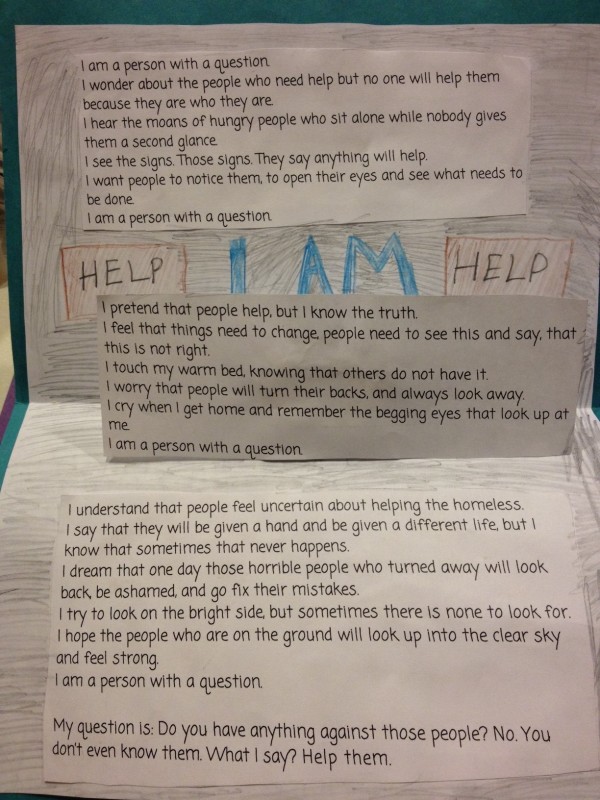 I am a person with a question.
I wonder about the people who need help but no one will help them
because they are who they are.
I hear the moans of hungry people who sit alone while nobody gives
them a second glance.
I see the signs. Those signs. They say anything will help.
I want people to notice them, to open their eyes and see what needs to
be done.
I am a person with a question.
HELP I AM HELP
I pretend that people help, but I know the truth.
I feel that things need to change, people need to see this and say, that
this is not right.
I touch my warm bed, knowing that others do not have it.
I worry that people will turn their backs, and always look away.
I cry when I get home and remember the begging eyes that look up at
me.
I am a person with a question.
I understand that people feel uncertain about helping the homeless.
I say that they will be given a hand and be given a different life, but I
know that sometimes that never happens.
I dream that one day those horrible people who turned away will look
back, be ashamed, and go fix their mistakes.
I try to look on the bright side, but sometimes there is none to look for.
I hope the people who are on the ground will look up into the clear sky
and feel strong.
I am a person with a question.
My question is: Do you have anything against those people? No. You
don't even know them. What I say? Help them.